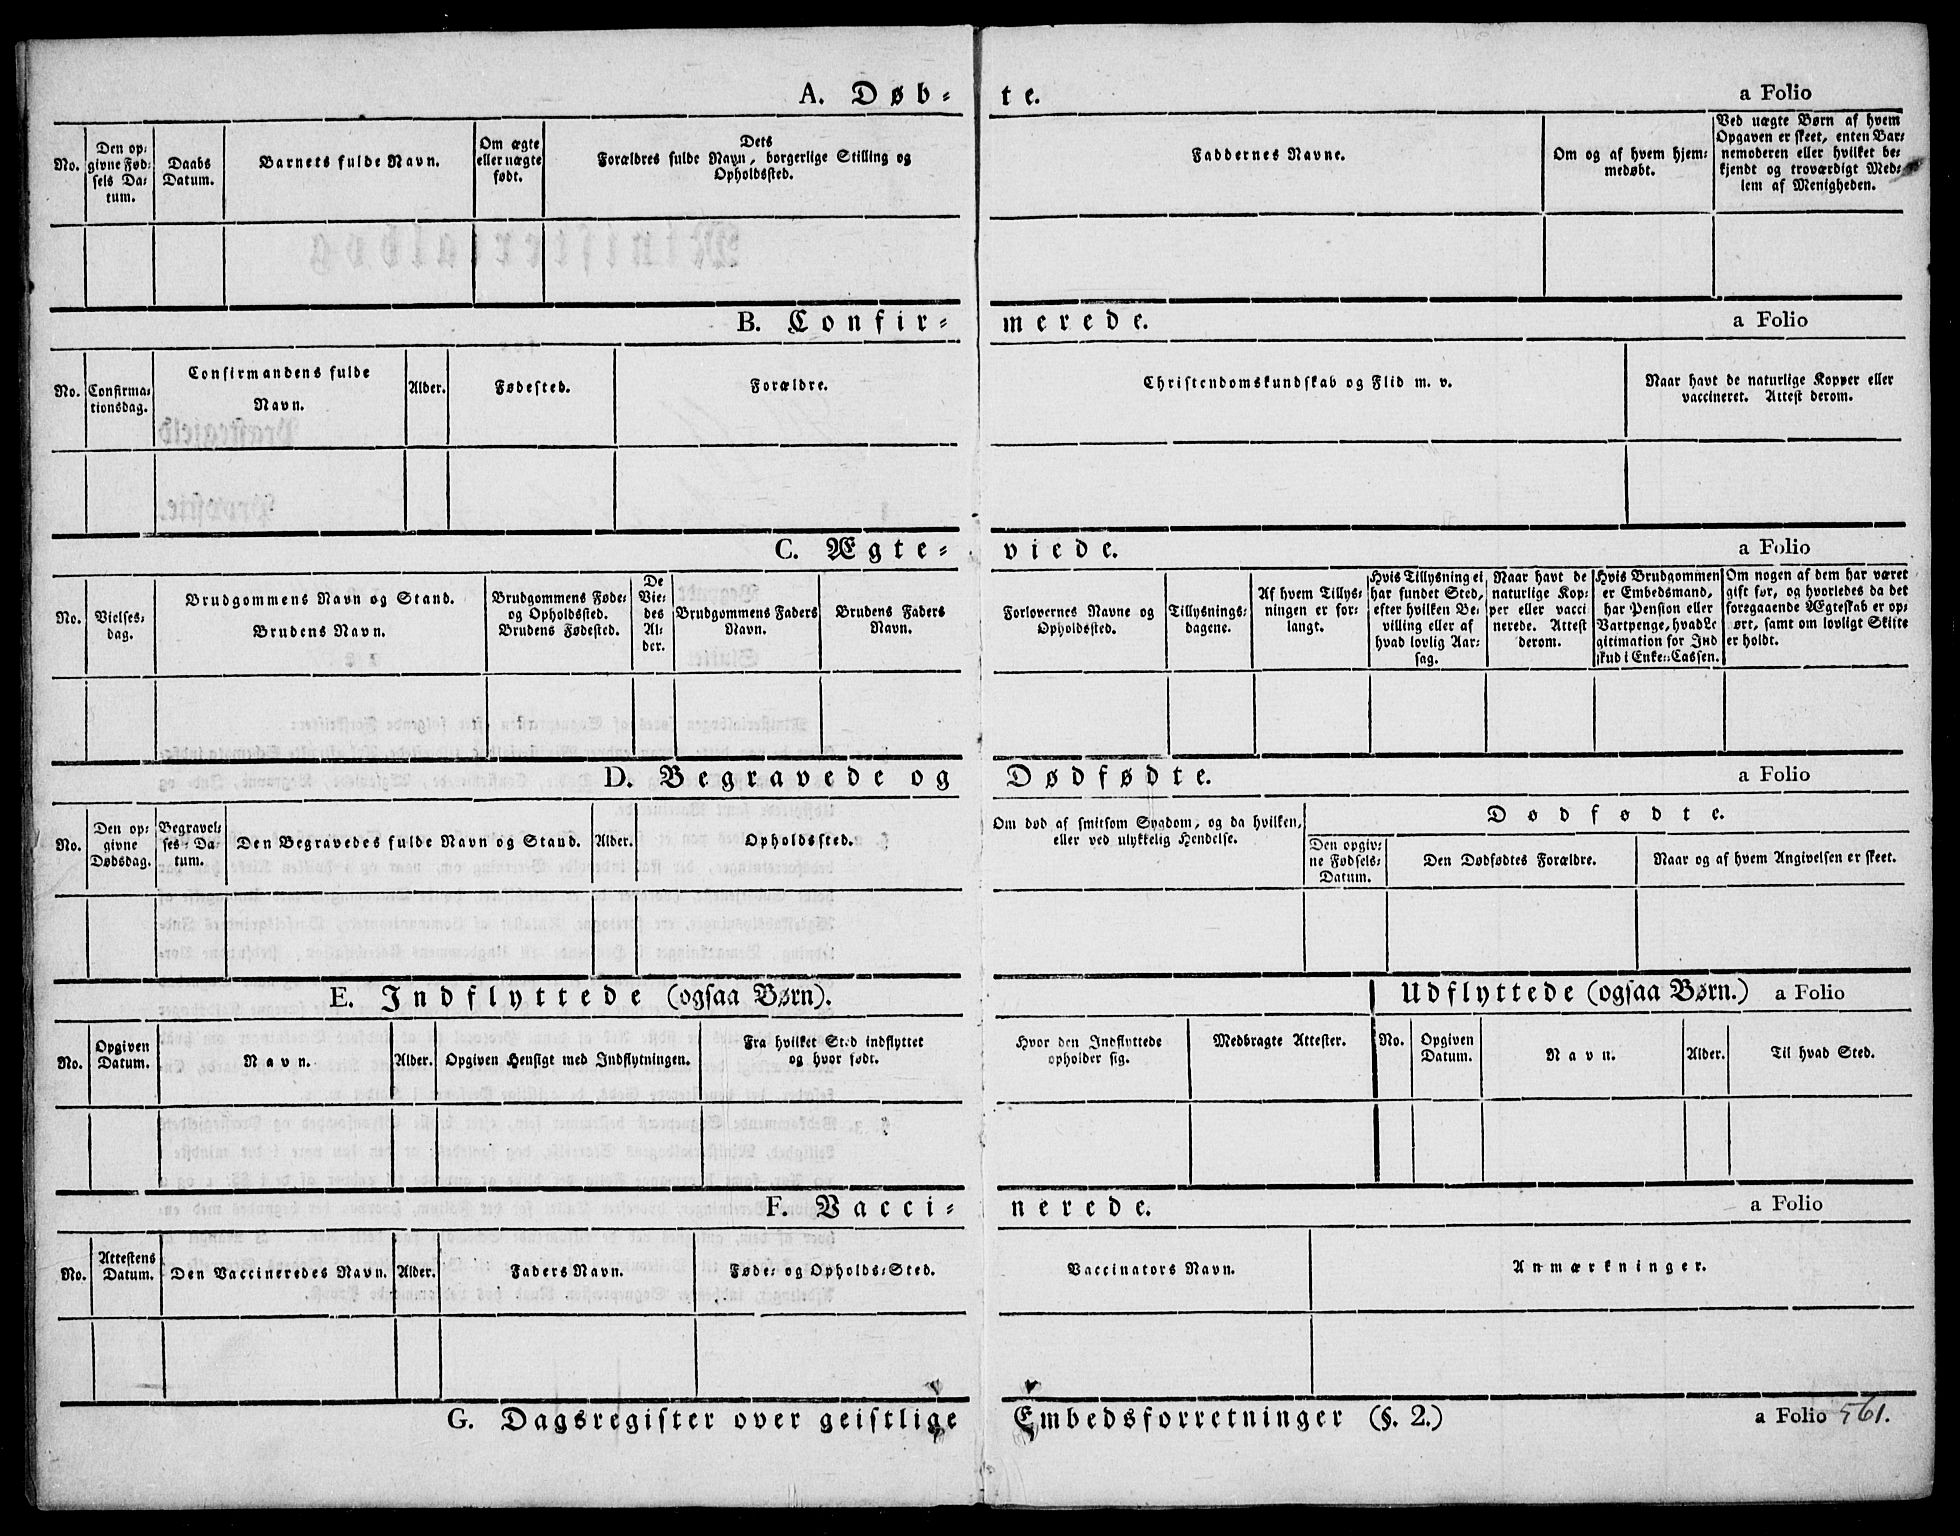 A. Døb-te. a Folio
No.
Den op-
givne Fød-
sels Da-
tum.
Daabs
Datum.
Barnets fulde Navn.
Om ægte
eller uægte
født.
Dets
Forældres fulde Navn, borgerlige Stilling og
Opholdssted.
Faddernes Navne.
Om og af hvem hjem-
medøbt.
Ved uægte Børn af hvem
Opgaven er skeet, enten Bar-
nemoderen eller hvilket be-
kjendt og troværdigt Med-
lem af Menigheden.
B. Confir-merede. a Folio
No.
Confirma-
tionsdag.
Confirmandens fulde
Navn.
Alder.
Fødested.
Forældre.
Christendomskundskab og Flid m. v.
Naar havt de naturlige Kopper eller
vaccineret. Attest derom.
C. Ægte-viede. a Folio
No.
Vielses-
dag.
Brudgommens Navn og Stand.
Brudens Navn.
Brudgommens Føde-
og Opholdssted.
Brudens Fødested.
De
Vie-
des
Al-
der.
Brudgommens Faders
Navn.
Brudens Faders
Navn.
Forlovernes Navne og
Opholdssted.
Tillysnings-
dagene.
Af hvem Tillys-
ningen er for-
langt.
Hvis Tillysning ei
har fundet Sted,
efter hvilken Be-
villing eller af
hvad lovlig Aar-
sag.
Naar havt de
naturlige Kop-
per eller vacci
nerede. Attest
derom.
Hvis Brudgommen
er Embedsmand,
har Pension eller
Vartpenge, hvad Le
gitimation for Ind
skud i Enke-Cassen.
Om nogen af dem har været
gift før, og hvorledes da det
foregaaende Ægteskab er op-
ørt, samt om lovligt Skifte
er holdt.
D. Begravede og Dødfødte. a Folio
No.
Den op-
givne
Dødsdag.
Begravel-
ses-Da-
tum.
Den Begravedes fulde Navn og Stand.
Alder.
Opholdssted.
Om død af smitsom Sygdom, og da hvilken,
eller ved ulykkelig Hendelse.
Dødfødte.
Den opgiv-
ne Fødsels-
Datum.
Den Dødfødtes Forældre.
Naar og af hvem Angivelsen er skeet.
E. Indflyttede (ogsaa Børn).
Udflyttede (ogsaa Børn.) a Folio
No.
Opgiven
Datum.
Navn.
Alder.
Opgiven Hensigt med Indflytningen.
Fra hvilket Sted indflyttet
og hvor født.
Hvor den Indflyttede
opholder sig.
Medbragte Attester.
No.
Opgiven
Datum.
Navn.
Alder.
Til hvad Sted.
F. Vacci-nerede. a Folio
No.
Attestens
Datum.
Den Vaccineredes Navn.
Alder.
Faders Navn.
Føde- og Opholds-Sted.
Vaccinators Navn.
Anmærkninger.
G. Dagsregister over geistlige Embedsforretninger (§. 2.) a Folio 561.